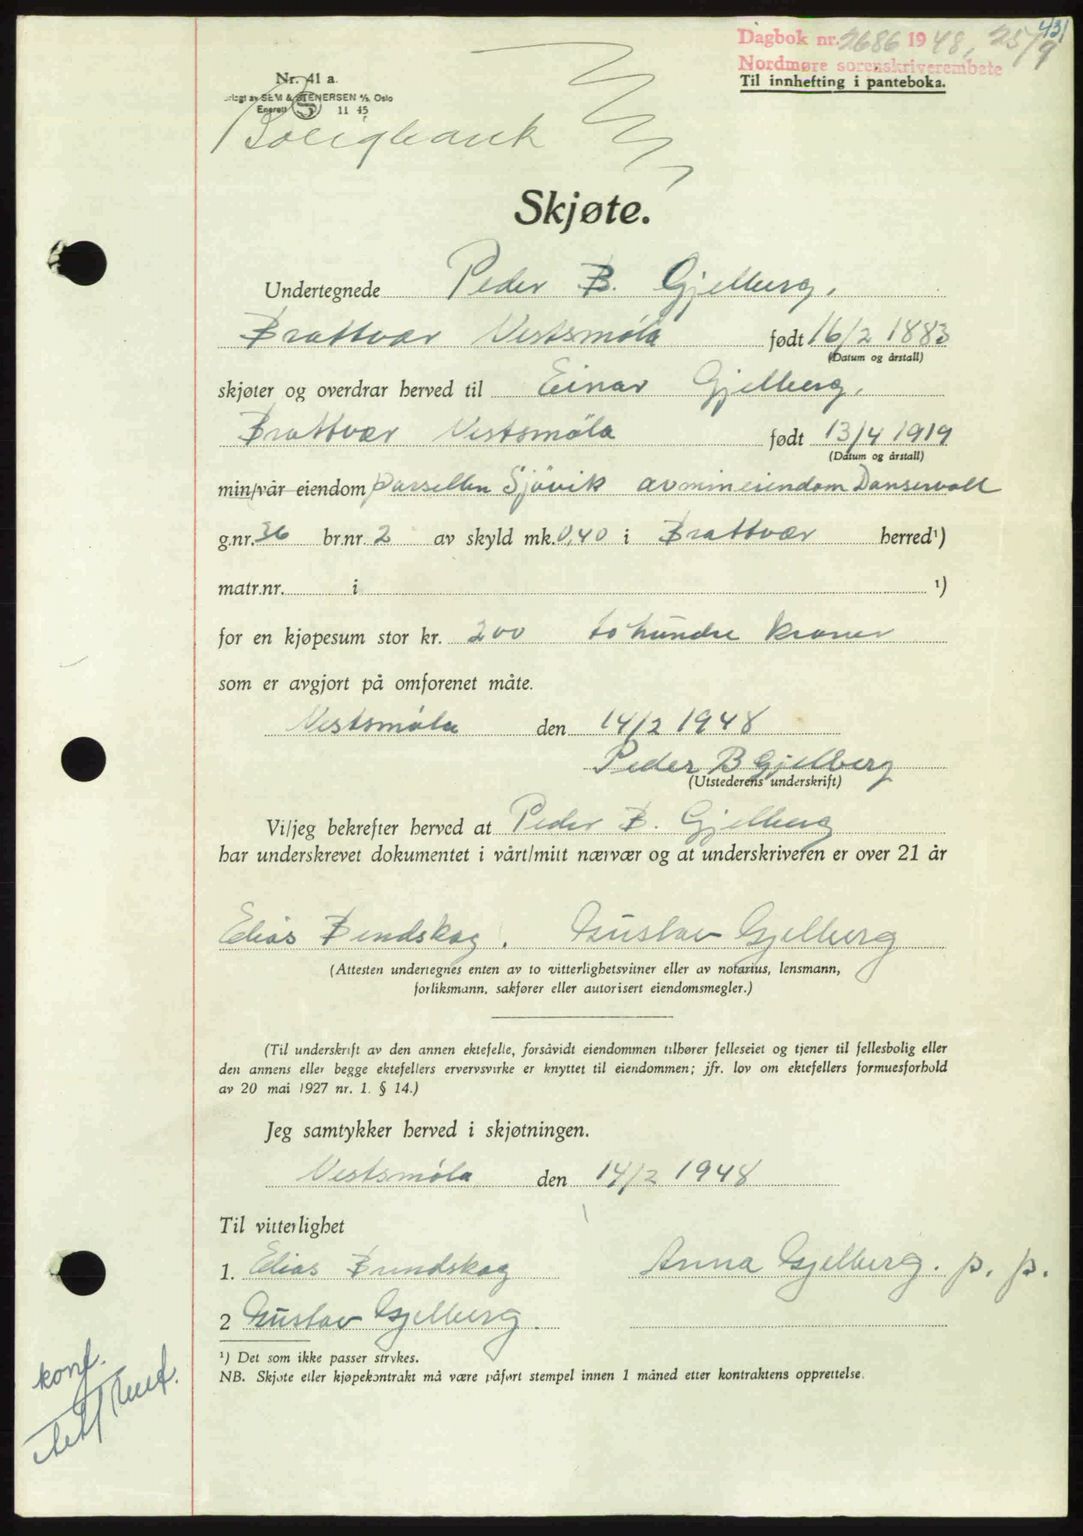 431
Dagbok nr. 2686 1948, 25/9
Nordmøre sorenskriverembete
Til innhefting i panteboka.
Nr. 41 a.
SEM & STENERSEN A/S, Oslo
Enerett 5 11 45
Boligbank
Skjøte.
Undertegnede Peder B. Gjelberg,
Brattvær Vestsmøla født 16/2 1883
(Datum og årstall)
skjøter og overdrar herved til Einar Gjelberg,
Brattvær Vestsmøla født 13/4 1919
(Datum og årstall)
min/vår eiendom parsellen Sjøvik av min eiendom Danservoll
g.nr. 36 br.nr. 2 av skyld mk. 0,40 i Brattvær herred¹)
matr.nr. i ¹)
for en kjøpesum stor kr. 200 to hundre kroner
som er avgjort på omforenet måte.
Vestsmøla den 14/2 1948
Peder B Gjelberg
(Utstederens underskrift)
Vi/jeg bekrefter herved at Peder B. Gjelberg
har underskrevet dokumentet i vårt/mitt nærvær og at underskriveren er over 21 år
Elias Bendskog. Gustav Gjelberg
(Attesten undertegnes enten av to vitterlighetsvitner eller av notarius, lensmann,
forliksmann, sakfører eller autorisert eiendomsmegler.)
(Til underskrift av den annen ektefelle, forsåvidt eiendommen tilhører felleseiet og tjener til fellesbolig eller
den annens eller begge ektefellers ervervsvirke er knyttet til eiendommen; jfr. lov om ektefellers formuesforhold
av 20 mai 1927 nr. 1. § 14.)
Jeg samtykker herved i skjøtningen.
Vestsmøla den 14/2 1948
Til vitterlighet
1. Elias Bendskog Anna Gjelberg. p. p.
2 Gustav Gjelberg.
¹) Det som ikke passer strykes.
NB. Skjøte eller kjøpekontrakt må være påført stempel innen 1 måned etter kontraktens opprettelse.
konf.